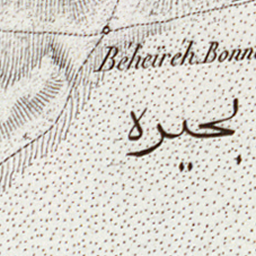 Beheïreh. Bonn
بحيره